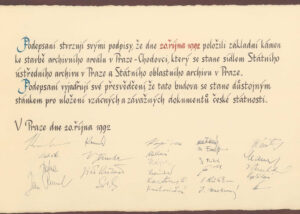 Podepsaní stvrzují svými podpisy, že dne 20. října 1992 položili základní kámen
ke stavbě archivního areálu v Praze-Chodovci, který se stane sídlem Státního
ústředního archivu v Praze a Státního oblastního archivu v Praze.
Podepsaní vyjadřují své přesvědčení, že tato budova se stane důstojným
stánkem pro uložení vzácných a závažných dokumentů české státnosti.
V Praze dne 20. října 1992